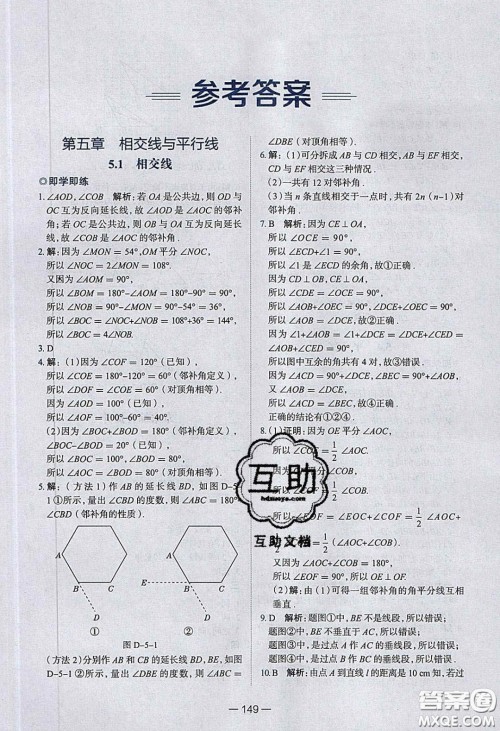 参考答案
第五章 相交线与平行线
5.1 相交线
◎即学即练
1.∠AOD,∠COB 解析:若 OA 是公共边,则 OD 与
OC 互为反向延长线,故 ∠AOD 是 ∠AOC 的邻补
角;若 OC 是公共边,则 OA 与 OB 互为反向延长
线,故 ∠COB 是 ∠AOC 的邻补角.
2.解:因为 ∠MON=54°,OM 平分 ∠NOC,
所以 ∠NOC=2∠MON=108°.
又因为 ∠AOM=90°,
所以 ∠BOM=180°-∠AOM=180°-90°=90°,
所以 ∠BON=∠BOM-∠MON=90°-54°=36°,
所以 ∠BOC=∠NOC+∠NOB=108°+36°=144°,
所以 ∠BOC=4∠NOB.
3.D
4.解:(1)因为 ∠COF=120°(已知),
所以 ∠COE=180°-120°=60°(邻补角定义),
所以 ∠DOF=∠COE=60°(对顶角相等).
又因为 ∠AOD=100°(已知),
所以 ∠AOF=100°-60°=40°.
(2)因为 ∠BOC+∠AOC=180°(邻补角定义),
∠BOC-∠BOD=20°(已知),
所以 ∠BOC=100°,∠BOD=80°,
所以 ∠AOC=∠BOD=80°(对顶角相等).
5.解:(方法1)作 AB 的延长线 BD,如图 D-5-
1①所示,量出 ∠DBC 的度数,则 ∠ABC=180°-
∠DBC(邻补角的性质).
A
B
C
D
①
A
B
C
E
D
②
图 D-5-1
(方法2)分别作 AB 和 CB 的延长线 BD,BE,如图
D-5-1②所示,量出 ∠DBE 的度数,则 ∠ABC=
∠DBE(对顶角相等).
6.解:(1)可分拆成 AB 与 CD 相交,AB 与 EF 相交,
CD 与 EF 相交这三种情况.
(2)一共有 12 对邻补角.
(3)当 n 条直线相交于一点时,共有 2n(n-1)对
邻补角.
7.B 解析:因为 CE⊥OA,
所以 ∠OCE=90°,
所以 ∠ECD+∠1=90°,
所以 ∠1 是 ∠ECD 的余角,故①正确.
因为 CD⊥OB,CE⊥OA,
所以 ∠AOB+∠DCE=360°-∠ODC-∠OEC=90°,
所以 ∠AOB=∠DCE,故②正确.
因为 ∠1+∠AOB=∠1+∠DCE=∠DCE+∠ACD=
∠ACD+∠AOB=90°,
所以图中互余的角共有 4 对,故③错误.
因为 ∠ACD=90°+∠DCE,∠BEC=90°+∠AOB,
∠AOB=∠DCE,
所以 ∠ACD=∠BEC,故④正确.
正确的结论有①②④.
8.(1)证明:因为 OE 平分 ∠AOC,
所以 ∠EOC=1/2∠AOC.
所以 ∠COF=1/2
所以 ∠EOF=∠EOC+∠COF=1/2∠AOC+1/2
又因为 ∠AOC+∠COB=180°,
所以 ∠EOF=90°,所以 OE⊥OF.
(2)解:由(1)可得一组邻补角的角平分线互相
垂直.
9.D 解析:题图①中,BE 不是线段,所以错误;
题图②中,BE 不垂直于 AC,所以错误;
题图③中,是过点 A 作 AC 的垂线段,所以错误;
题图④中,是过点 B 作 AC 的垂线段,所以正确.
10.B 解析:由点 A 到直线 l 的距离是 10 cm 知,若过
149
互助
hdzuoye.com
互助文档
答案圈
MXQE.COM